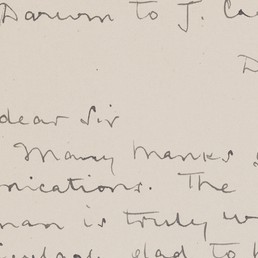 Darwin to J. Ca
D
dear Sir
Many thanks
nications. The
man is truly w
glad to h